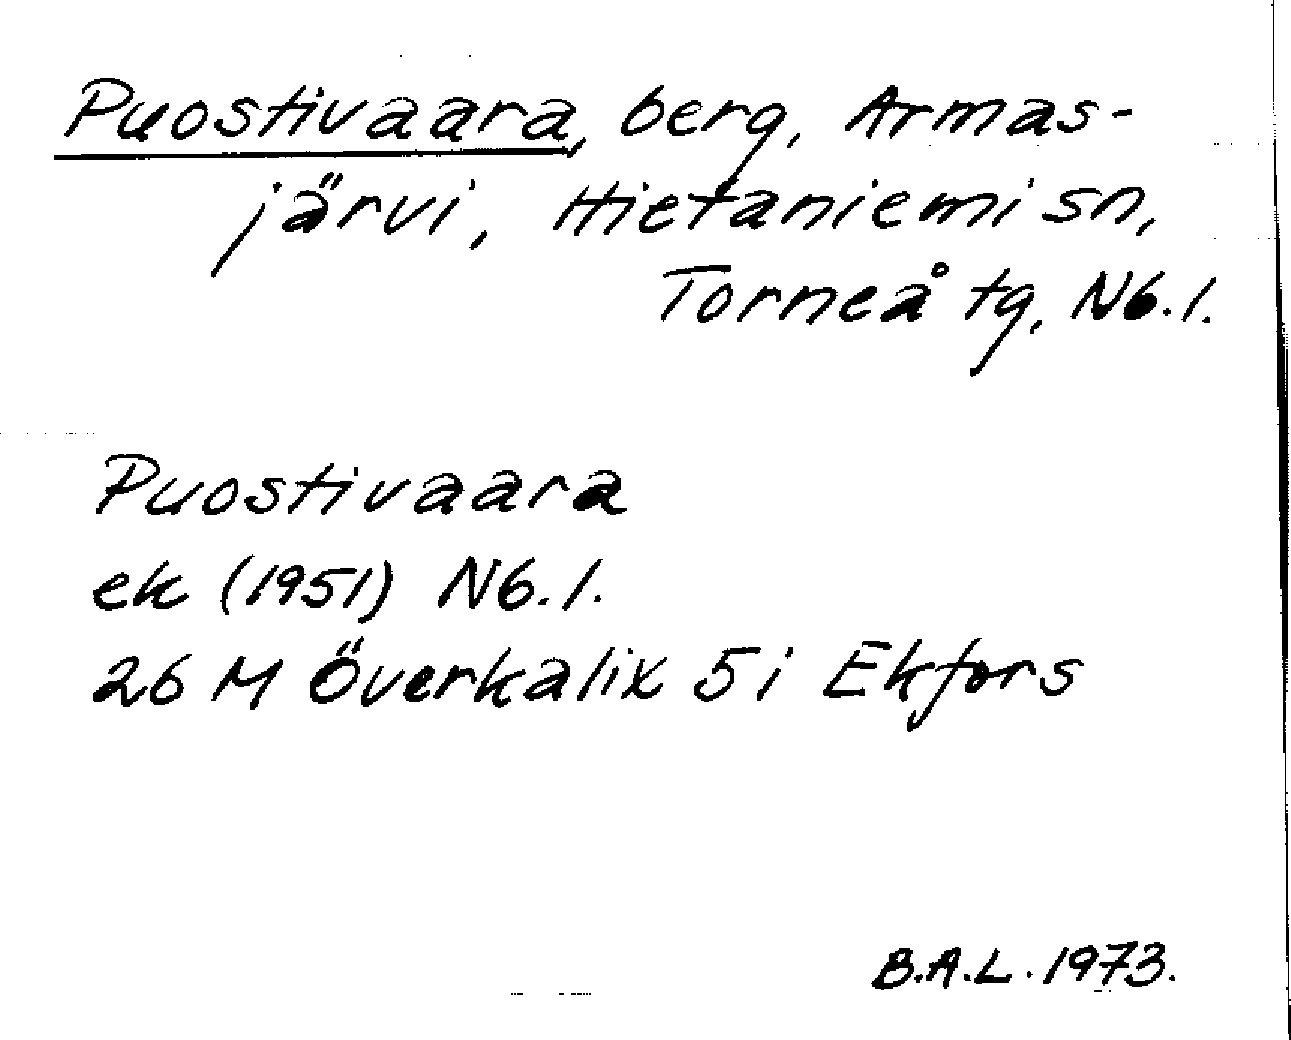 Puostivaara, berg, Armas-
järvi, Hietaniemi sn,
Torneå tg, Nb.l.
Puostivaara
ek (1951) Nb.l.
26 M Överkalix 5i Ekfors
B.A.L. 1973.